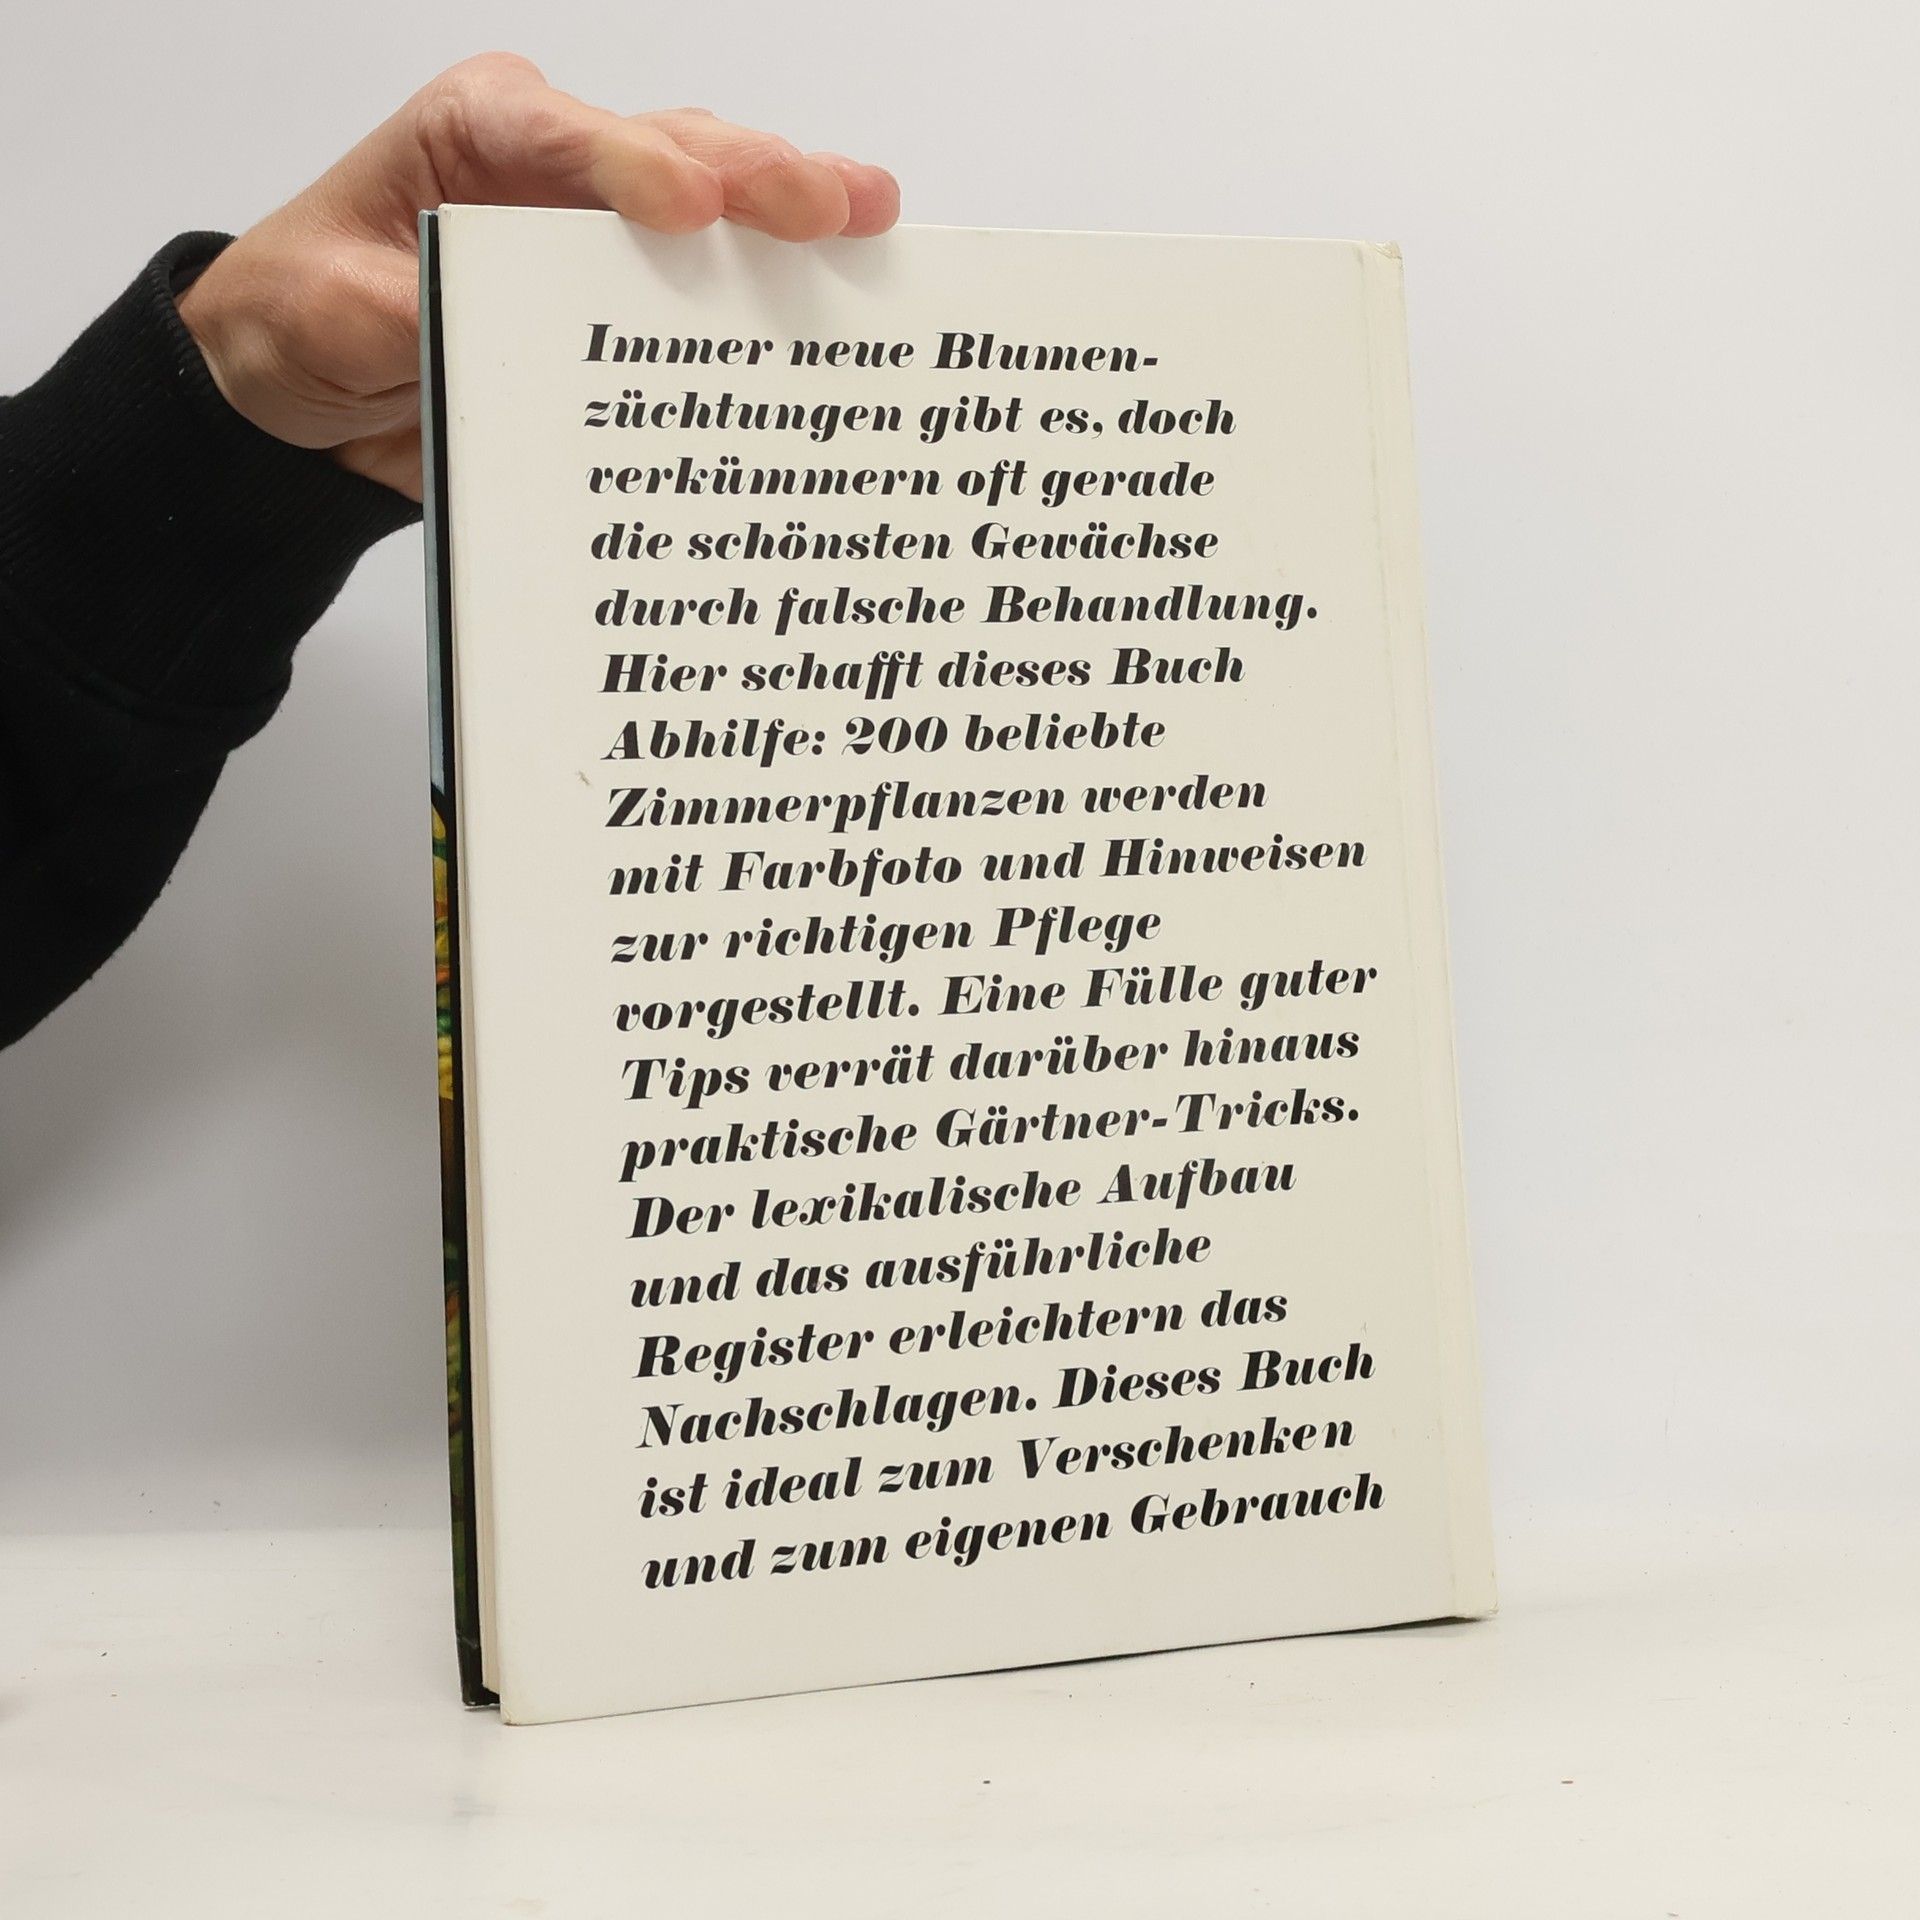 Immer neue Blumen-
züchtungen gibt es, doch
verkümmern oft gerade
die schönsten Gewächse
durch falsche Behandlung.
Hier schafft dieses Buch
Abhilfe: 200 beliebte
Zimmerpflanzen werden
mit Farbfoto und Hinweisen
zur richtigen Pflege
vorgestellt. Eine Fülle guter
Tips verrät darüber hinaus
praktische Gärtner-Tricks.
Der lexikalische Aufbau
und das ausführliche
Register erleichtern das
Nachschlagen. Dieses Buch
ist ideal zum Verschenken
und zum eigenen Gebrauch